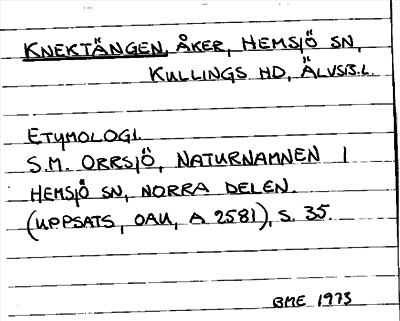 KNEKTÄNGEN, ÅKER, HEMSJÖ SN,
KULLINGS HD, ÄLVSB.L.
ETYMOLOGI.
S.M. ORRSJÖ, NATURNAMNEN I
HEMSJÖ SN, NORRA DELEN.
(UPPSATS, OAU, A 2581), S. 35.
BME 1973